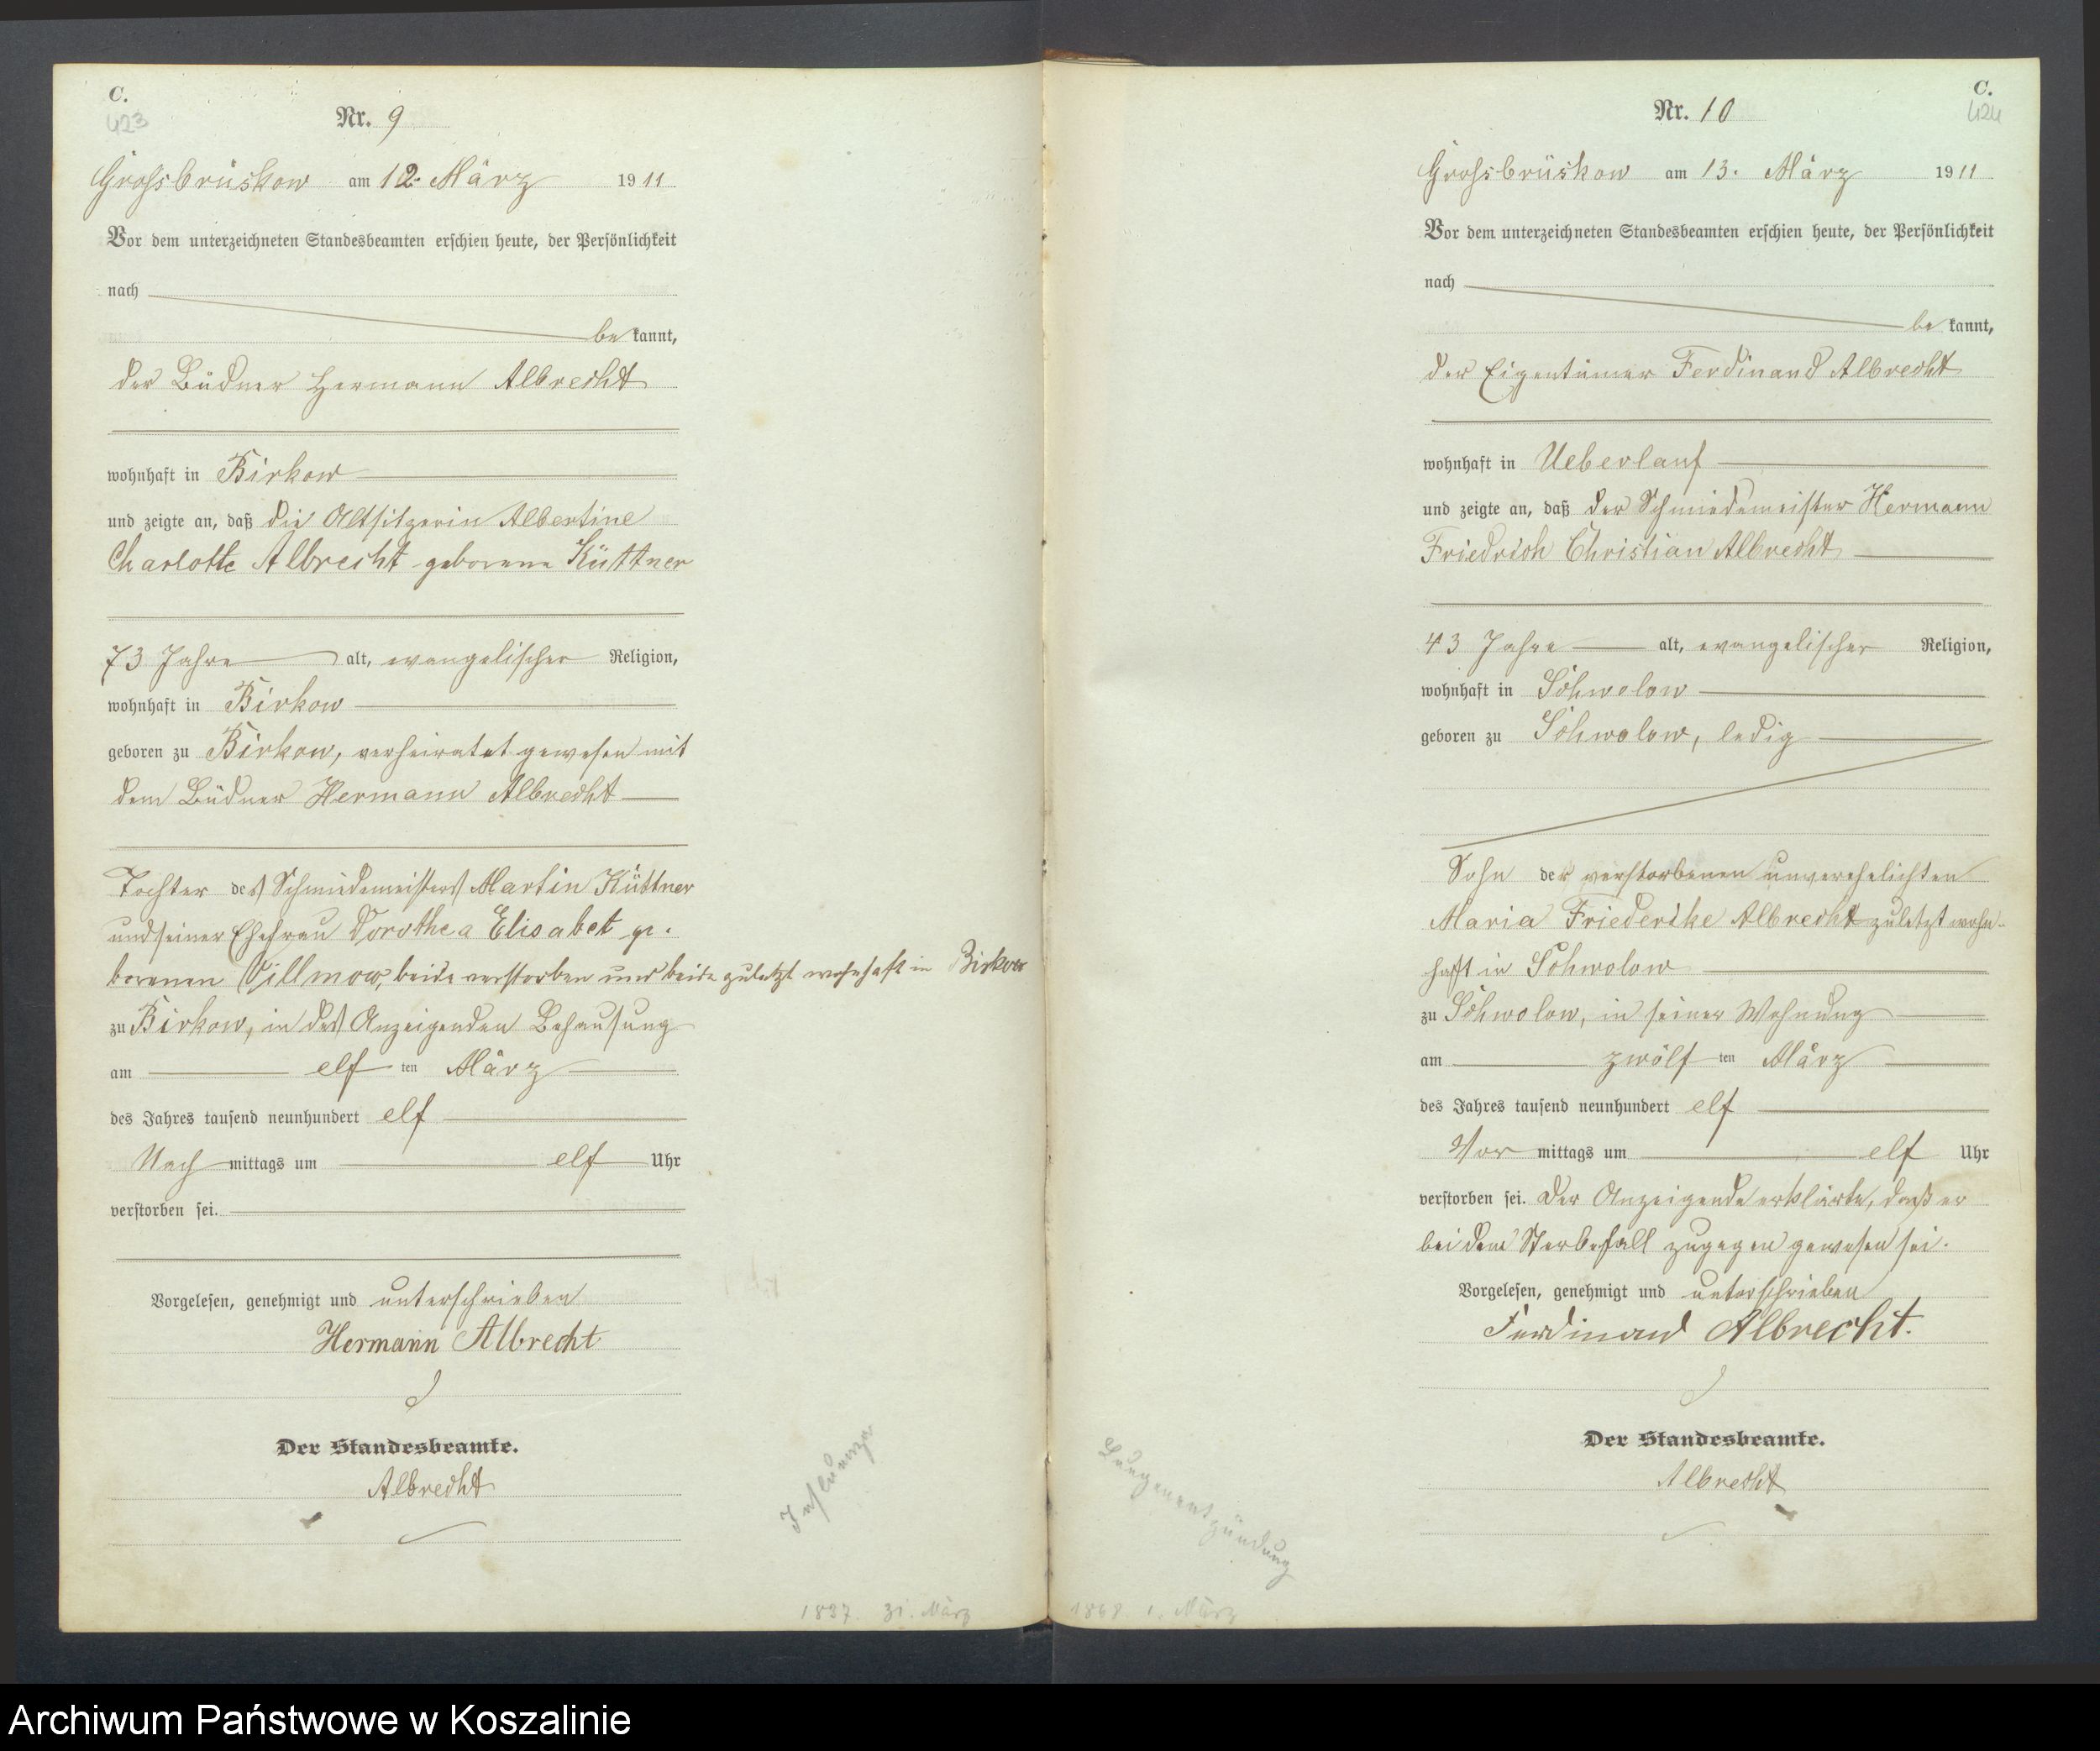 C.
423
Nr. 9
Grossbrüskow am 12. März 1911
Vor dem unterzeichneten Standesbeamten erschien heute, der Persönlichkeit
nach
bekannt,
der Büdner Hermann Albrecht
wohnhaft in Birkow
und zeigte an, daß die Altsitzerin Albertine
Charlotte Albrecht geborene Küttner
73 Jahre alt, evangelischer Religion,
wohnhaft in Birkow
geboren zu Birkow, verheiratet gewesen mit
dem Büdner Hermann Albrecht
Tochter des Schmiedemeisters Martin Küttner
und seiner Ehefrau Dorothea Elisabet ge-
borenen Villmow, beide verstorben und beide zuletzt wohnhaft in Birkow
zu Birkow, in des Anzeigenden Behausung
am elften März
des Jahres tausend neunhundert elf
Nachmittags um elf Uhr
verstorben sei.
Vorgelesen, genehmigt und unterschrieben
Hermann Albrecht
Der Standesbeamte.
Albrecht
Influenza
1837. 31. März
C.
424
Nr. 10
Grossbrüskow am 13. März 1911
Vor dem unterzeichneten Standesbeamten erschien heute, der Persönlichkeit
nach
bekannt,
der Eigentümer Ferdinand Albrecht
wohnhaft in Ueberlauf
und zeigte an, daß der Schmiedemeister Hermann
Friedrich Christian Albrecht
43 Jahre alt, evangelischer Religion,
wohnhaft in Schwolow
geboren zu Schwolow, ledig
Sohn der verstorbenen unverehelichten
Maria Friederike Albrecht zuletzt wohn-
haft in Schwolow
zu Schwolow, in seiner Wohnung
am zwölften März
des Jahres tausend neunhundert elf
Vormittags um elf Uhr
verstorben sei. Der Anzeigende erklärte, daß er
bei dem Sterbefall zugegen gewesen sei.
Vorgelesen, genehmigt und unterschrieben
Ferdinand Albrecht.
Der Standesbeamte.
Albrecht
Lungenentzündung
1868 1. März
Archiwum Państwowe w Koszalinie